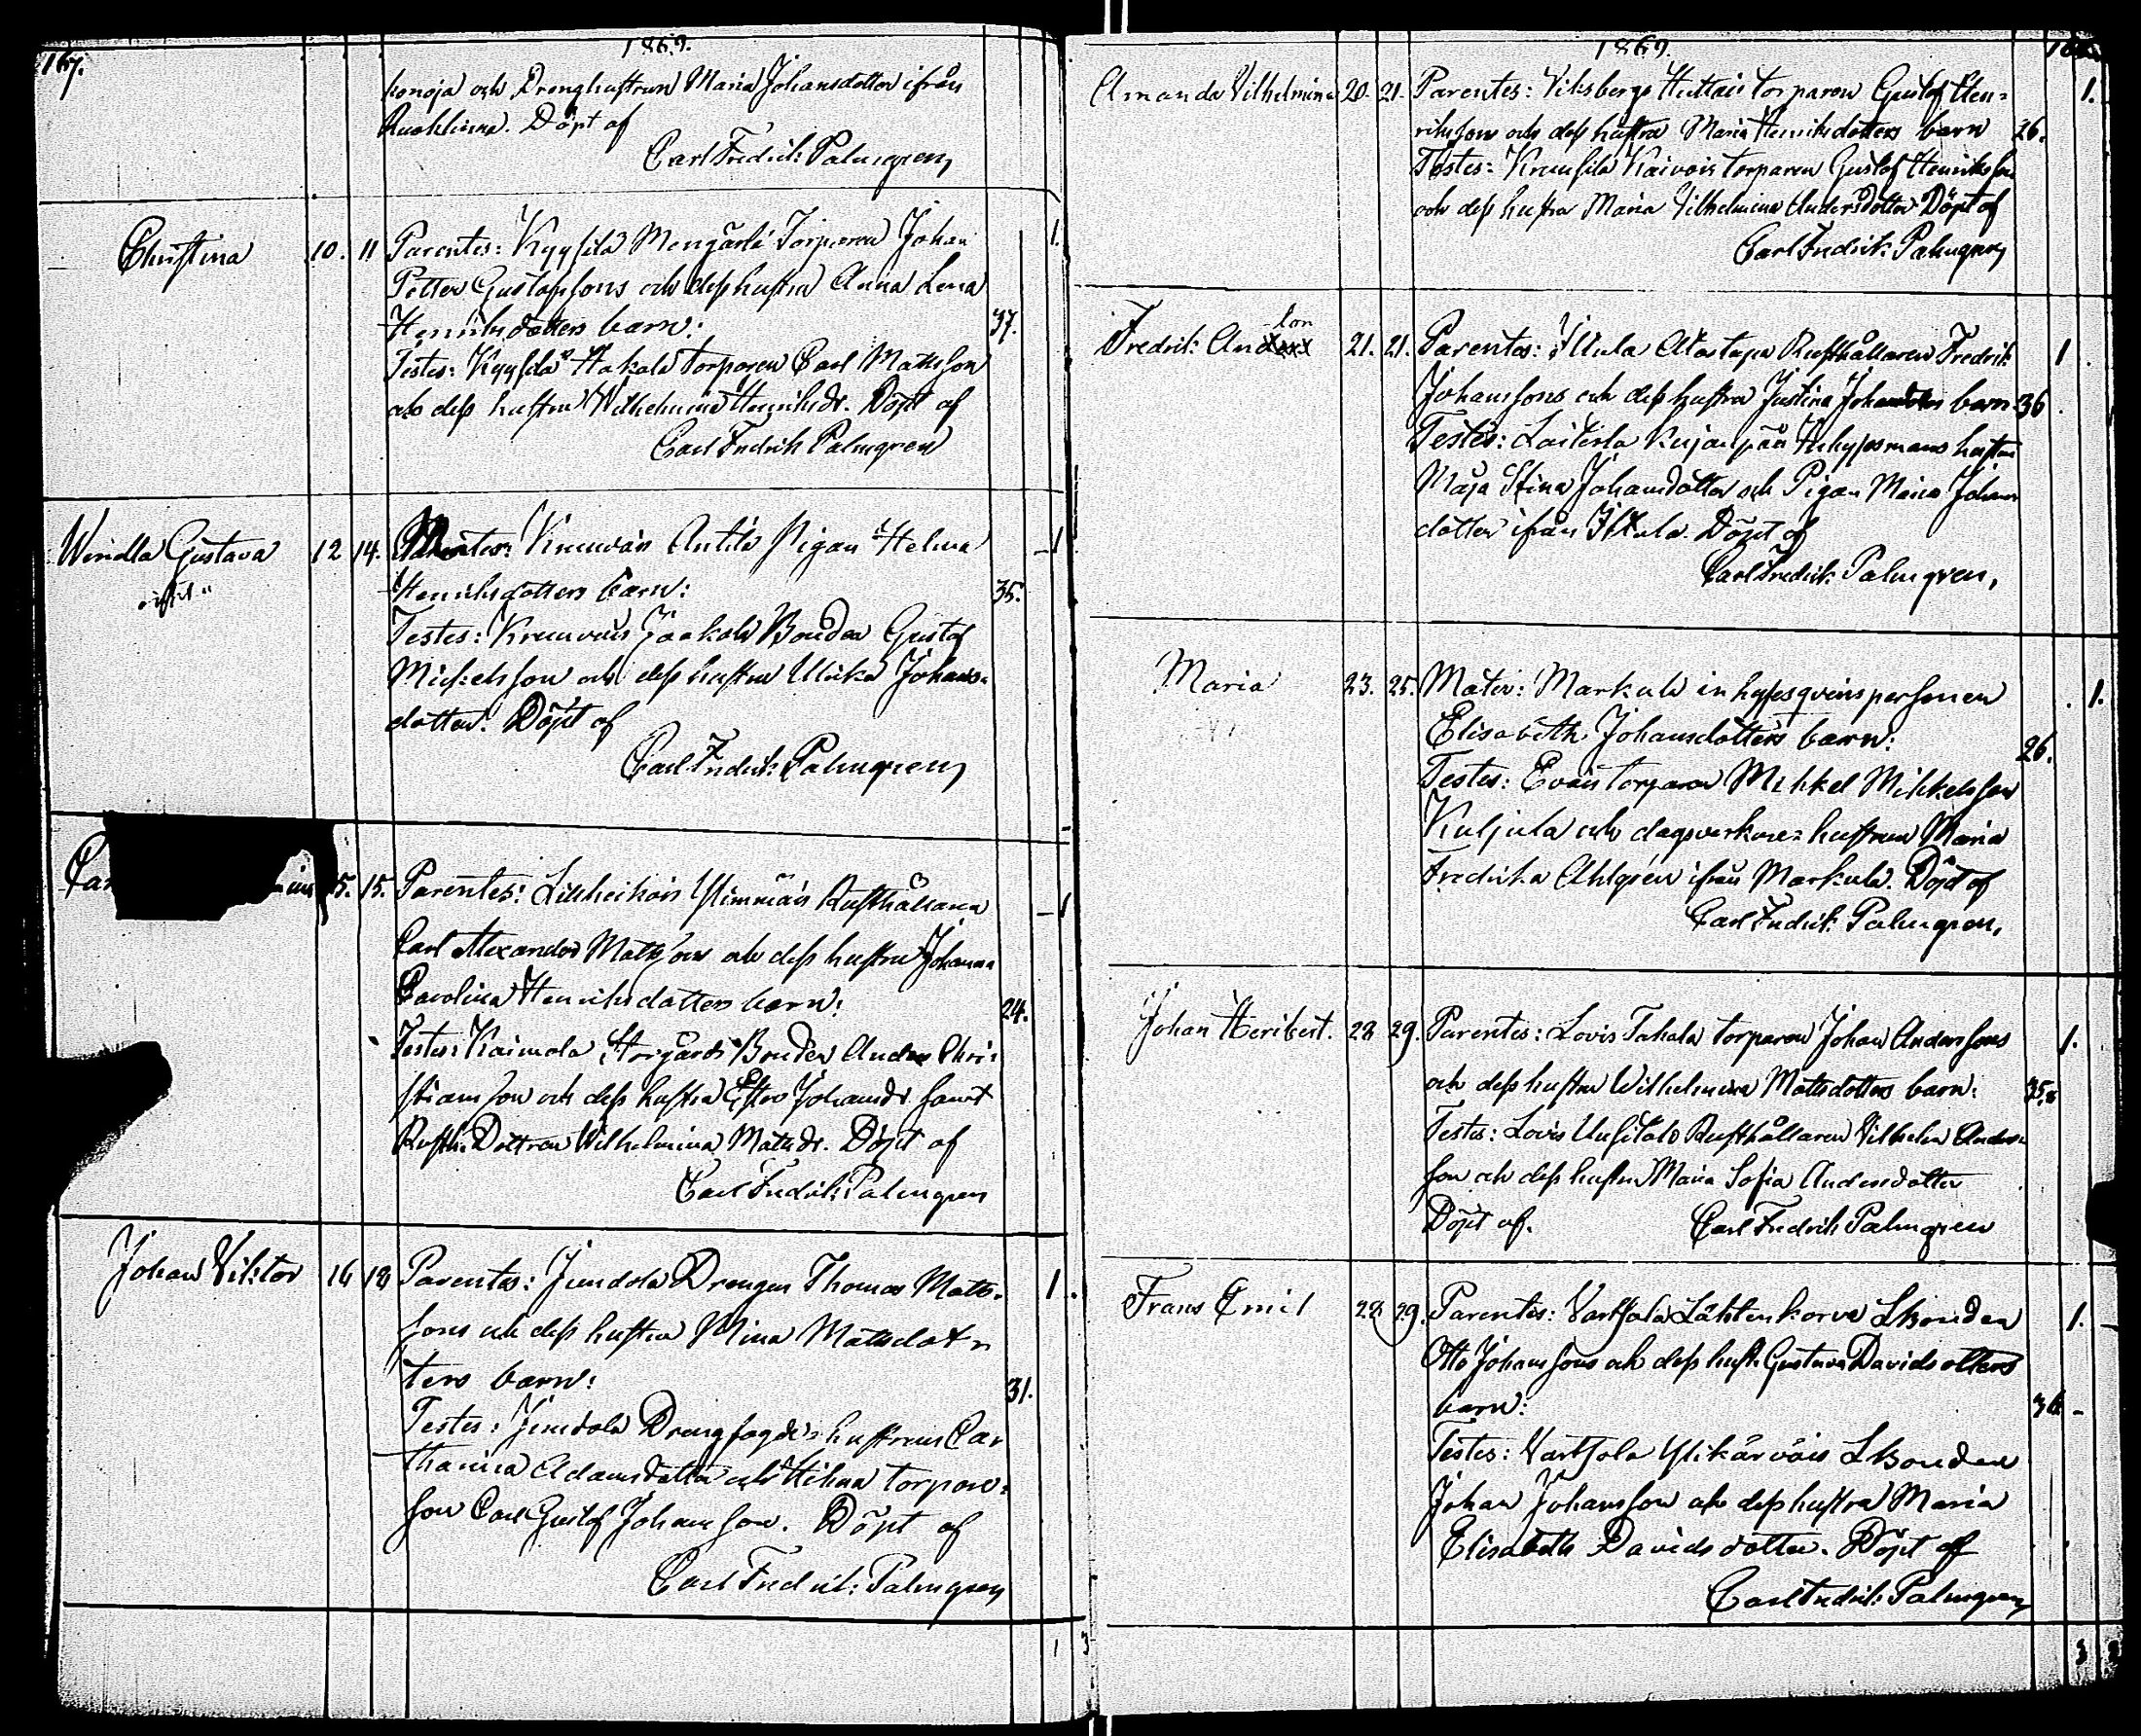 167.
1869.
konoja och Drenghustrun Maria Johansdotter ifrån
Döpt af
Carl Fredrik Palmgren
Christina 10. 11 Parentes: Kyysilä Torparen Johan 1.
Petter Gustafssons och dess hustru Anna Lena
Henriksdotters barn: 37.
Testes: Kyysilä Hakala torparen Carl Mattsson
och dess hustru Wilhelmina Henriksdr. Döpt af
Carl Fredrik Palmgren
Wendla Gustava 12 14. Antila Pigan Helena 1
Henriksdotters barn: 35.
Testes: Jaakola Bonden Gustaf
Michelsson och dess hustru Ulrika Johans-
dotter. Döpt af
Carl Fredrik Palmgren
5. 15. Parentes: Rusthållaren 1
Carl Alexander Mattssons och dess hustru Johanna
Carolina Henriksdotters barn: 24.
Testes: Kaimola Storgårds Bonden Anders Chri-
stiansson och dess hustru Ester Johansdr. samt
Rusth. Dottren Wilhelmina Matsdr. Döpt af
Carl Fredrik Palmgren
Johan Viktor 16 18 Parentes: Jundola Drengen Thomas Matts- 1.
sons och dess hustru Mina Mattsdot-
ters barn: 31.
Testes: Jundola Drengfogde-hustrun Ca-
tharina Adamsdotter och torpare-
son Carl Gustaf Johansson. Döpt af
Carl Fredrik Palmgren
1 3
1869.
Amanda Vilhelmina 20. 21. Parentes: Viksbergs Huttais torparen Gustaf Hen- 1.
rikssons och dess hustru Maria Henriksdotters barn 26.
Testes: Kaivois torparen Gustaf Henriksson
och dess hustru Maria Vilhelmina Andersdotter Döpt af
Carl Fredrik Palmgren
lon
Fredrik And 21. 21. Parentes: Alastupa Rusthållaren Fredrik 1
Johanssons och dess hustru Justina barn 36.
Testes: inhysesmans hustru
Maja Stina Johansdotter och Pigan Maria Johans
dotter ifrån Döpt af
Carl Fredrik Palmgren,
Maria 23. 25. Mater: Markula inhysesqvinspersonen 1.
Elisabeth Johansdotters barn: 26.
Testes: torparen Mihkel Mihkelsson
Kuljula och dagsverkare-hustrun Maria
Fredrika Ahlgren ifrån Markula. Döpt af
Carl Fredrik Palmgren,
Johan Heribert. 28 29. Parentes: Lovis Tahala torparen Johan Anderssons 1.
och dess hustru Wilhelmina Mattsdotters barn: 35.
Testes: Lovis Uusitalo Rusthållaren Vilhelm Anders-
son och dess hustru Maria Sofia Andersdotter
Döpt af. Carl Fredrik Palmgren
Frans Emil 28 29. Parentes: Vartsala Lähtenkorva Lbonden 1.
Otto Johanssons och dess hust. Gustava Davidsdotters
barn: 36
Testes: Vartsala Lbonden
Johan Johansson och dess hustru Maria
Elisabeth Davidsdotter. Döpt af
Carl Fredrik Palmgren
3